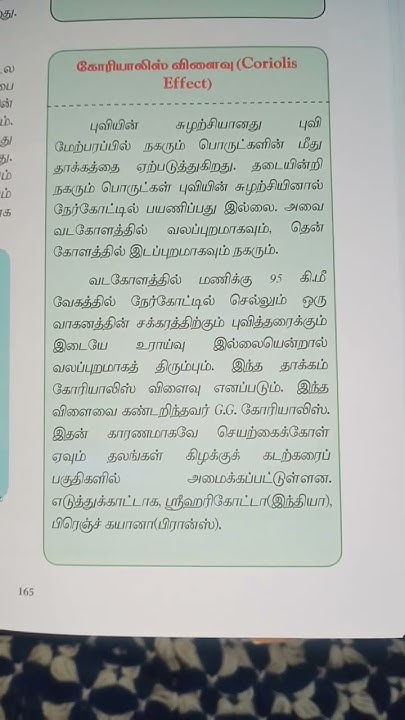 கோரியாலிஸ் விளைவு (Coriolis
Effect)
புவியின் சுழற்சியானது புவி
மேற்பரப்பில் நகரும் பொருட்களின் மீது
தாக்கத்தை ஏற்படுத்துகிறது. தடையின்றி
நகரும் பொருட்கள் புவியின் சுழற்சியினால்
நேர்கோட்டில் பயணிப்பது இல்லை. அவை
வடகோளத்தில் வலப்புறமாகவும், தென்
கோளத்தில் இடப்புறமாகவும் நகரும்.
வடகோளத்தில் மணிக்கு 95 கி.மீ
வேகத்தில் நேர்கோட்டில் செல்லும் ஒரு
வாகனத்தின் சக்கரத்திற்கும் புவித்தரைக்கும்
இடையே உராய்வு இல்லையென்றால்
வலப்புறமாகத் திரும்பும். இந்த தாக்கம்
கோரியாலிஸ் விளைவு எனப்படும். இந்த
விளைவை கண்டறிந்தவர் G.G. கோரியாலிஸ்.
இதன் காரணமாகவே செயற்கைக்கோள்
ஏவும் தலங்கள் கிழக்குக் கடற்கரைப்
பகுதிகளில் அமைக்கப்பட்டுள்ளன.
எடுத்துக்காட்டாக, ஸ்ரீஹரிகோட்டா(இந்தியா),
பிரெஞ்ச் கயானா(பிரான்ஸ்).
165